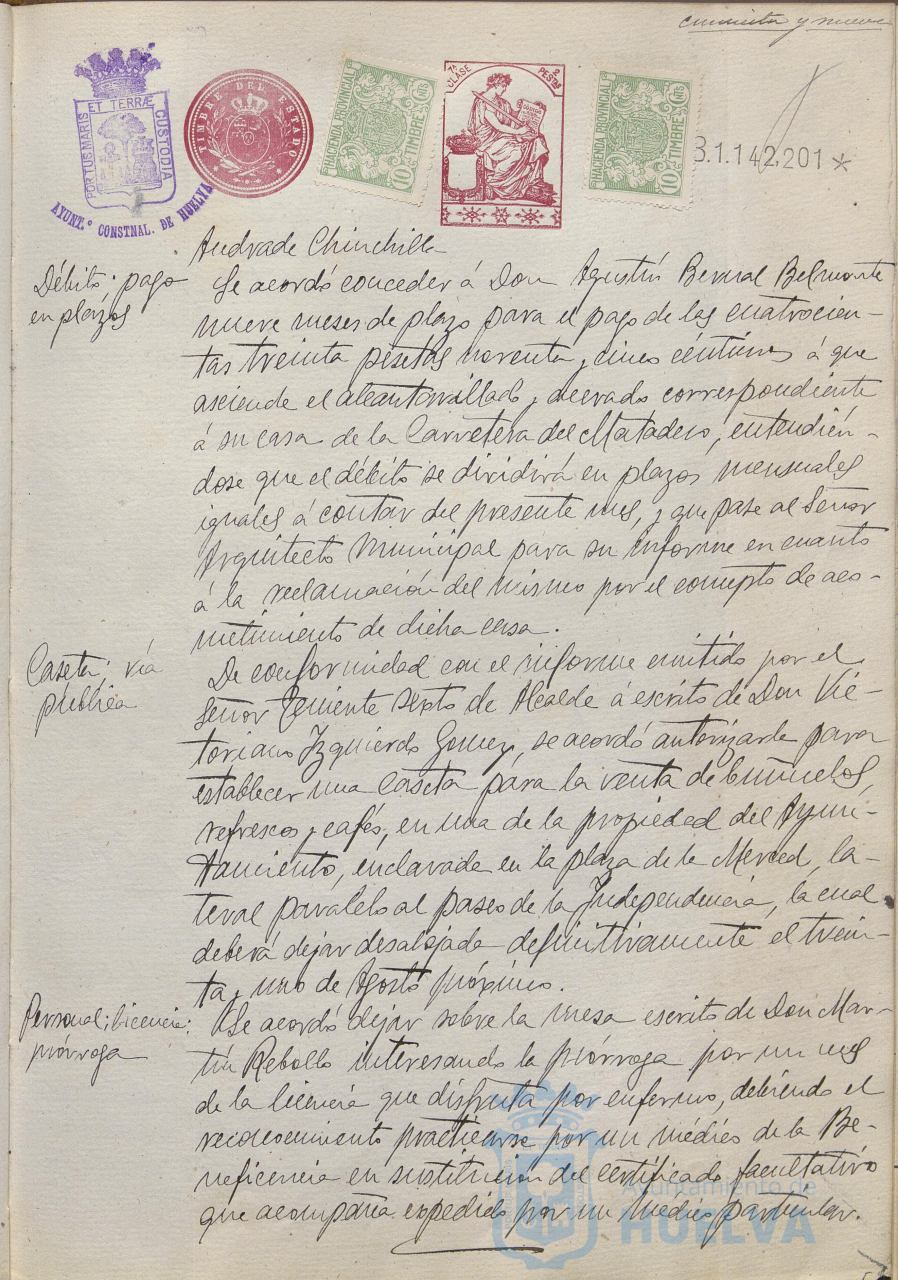 cincuenta y nueve
PORTUS MARIS ET TERRÆ CUSTODIA
AYUNT.º CONSTNAL. DE HUELVA
TIMBRE DEL ESTADO
HACIENDA PROVINCIAL
10 Cts
TIMBRE
7ª CLASE
2 PESTAS
HACIENDA PROVINCIAL
10 Cts
TIMBRE
B.1.142,201 *
Andrade Chinchilla
Débito; pago
en plazos
Se acordó conceder á Don Agustín Bernal Belmonte
nueve meses de plazo para el pago de las cuatrocien-
tas treinta pesetas noventa y cinco céntimos á que
asciende el alcantarillado y acerado correspondiente
á su casa de la Carretera del Matadero, entendién-
dose que el débito se dividirá en plazos mensuales
iguales á contar del presente mes, y que pase al Señor
Arquitecto Municipal para su informe en cuanto
á la reclamación del mismo por el concepto de aco-
metimiento de dicha casa.
Caseta; vía
pública
De conformidad con el informe emitido por el
Señor Teniente sexto de Alcalde á escrito de Don Vic-
toriano Izquierdo Gomez, se acordó autorizarle para
establecer una caseta para la venta de buñuelos,
refrescos y cafés, en una de la propiedad del Ayun-
tamiento, enclavada en la plaza de la Merced, la-
teral paralelo al paseo de la Independencia, la cual
deberá dejar desalojada definitivamente el trein-
ta y uno de Agosto próximo.
Personal; licencia;
prórroga
Se acordó dejar sobre la mesa escrito de Don Mar-
tín Rebollo interesando la prórroga por un mes
de la licencia que disfruta por enfermo, debiendo el
reconocimiento practicarse por un médico de la Be-
neficencia en sustitución del certificado facultativo
que acompaña expedido por un médico particular.
Ayuntamiento de
HUELVA